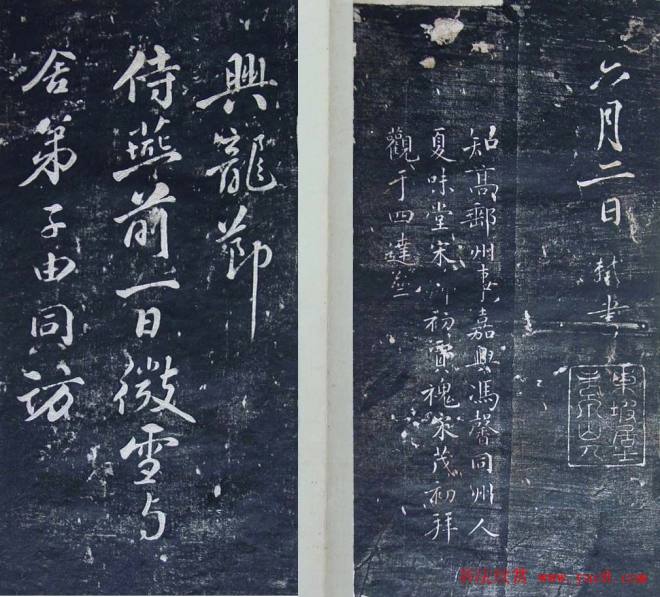 六月二日
軾書
東坡居士
知高郵州事嘉興馮馨同州人
夏味堂宋
初賈
宋茂初拜
觀于四達
興龍節
侍燕前一日微雪与
舍弟子由同訪
书法欣赏 www.yac8.com